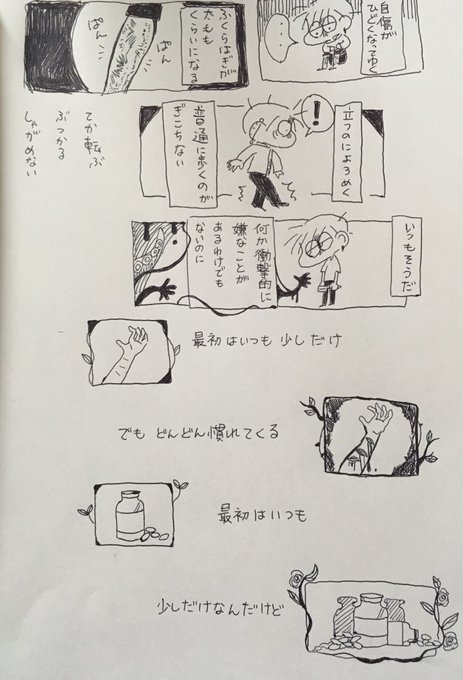 自傷が
ひどくなってゆく
・・・
ふくらはぎが
太もも
くらいになる
ぱん
ぱん
立つのによろめく
!
普通に歩くのが
ぎこちない
てか転ぶ
ぶつかる
しゃがめない
いつもそうだ
何か衝撃的に
嫌なことが
あるわけでも
ないのに
最初はいつも 少しだけ
でも どんどん慣れてくる
最初はいつも
少しだけなんだけど